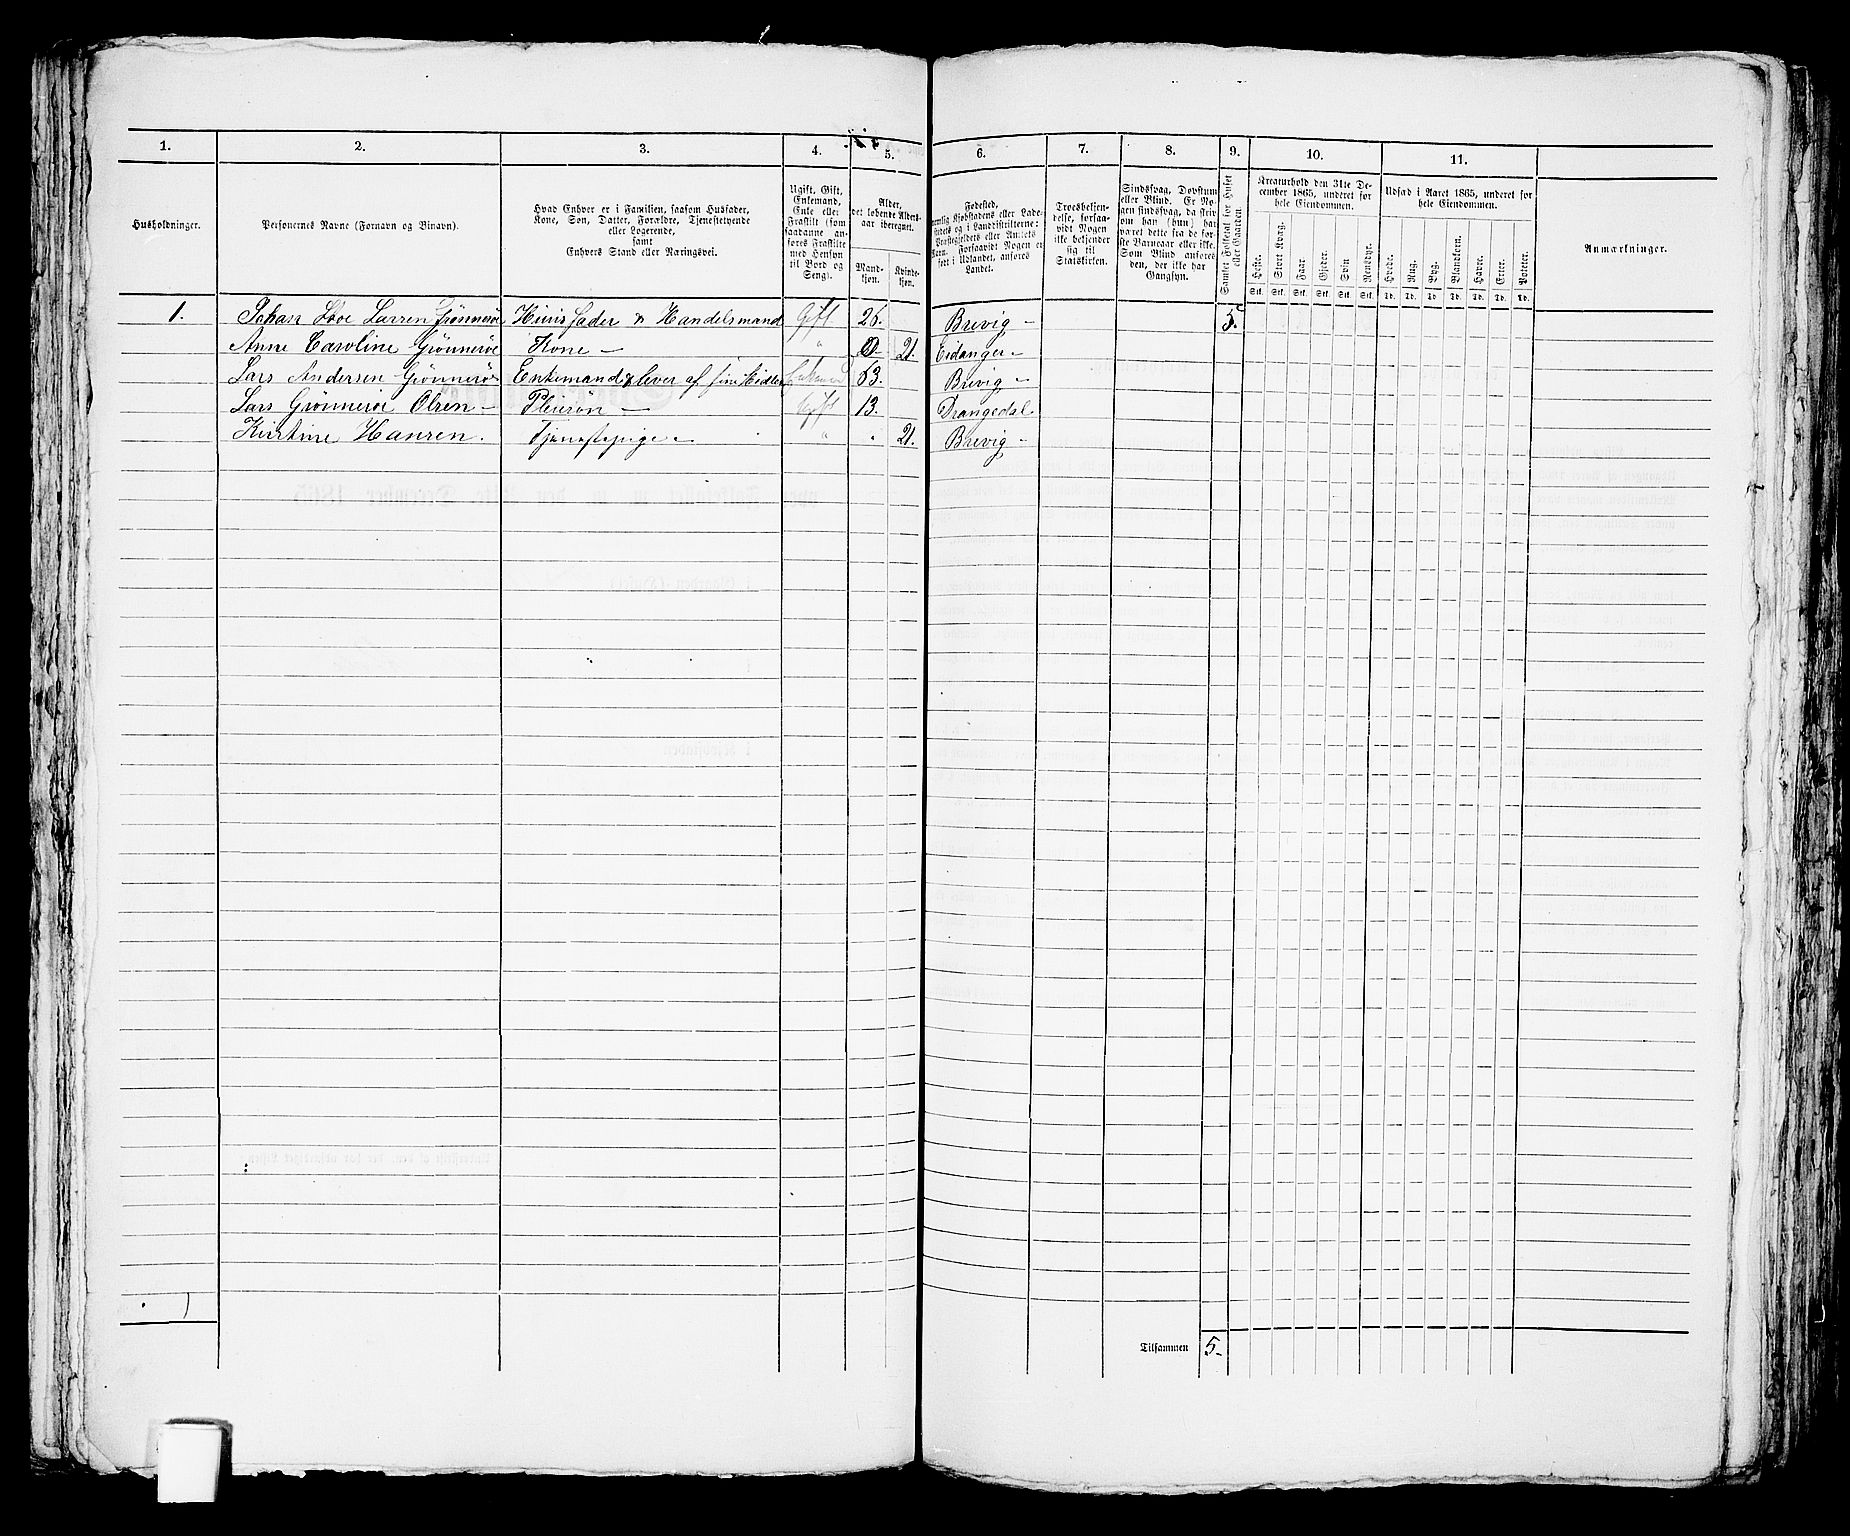 1. 2. 3. 4. 5. 6. 7. 8. 9. 10. 11.
Husholdninger.
Personernes Navne (Fornavn og Binavn).
Hvad Enhver er i Familien, saasom Husfader,
Kone, Søn, Datter, Forældre, Tjenestetyende
eller Logerende,
samt
Enhvers Stand eller Næringsvei.
Ugift, Gift,
Enkemand,
Enke eller
Fraskilt (som
saadanne an-
føres Fraskilte
med Hensyn
til Bord og
Seng).
Alder,
det løbende Alders-
aar iberegnet.
Mand-
kjøn.
Kvinde-
kjøn.
Fødested,
nemlig Kjøbstadens eller Lade-
stedets og i Landdistrikterne:
Præstegjeldets eller Amtets
Navn. Forsaavidt Nogen er
født i Udlandet, anføres
Landet.
Troesbekjen-
delse, forsaa-
vidt Nogen
ikke bekjender
sig til
Statskirken.
Sindssvag, Døvstum
eller Blind. Er No-
gen sindssvag, da skriv
om han (hun) har
været dette fra de før-
ste Barneaar eller ikke.
Som Blind anføres
den, der ikke har
Gangsyn.
Samlet Folketal for Huset
eller Gaarden.
Kreaturhold den 31te De-
cember 1865, underet for
hele Eiendommen.
Heste. Stort Kvæg. Faar. Gjeder. Svin. Rensdyr.
Stk. Stk. Stk. Stk. Stk. Stk.
Udsæd i Aaret 1865, underet for
hele Eiendommen.
Hvede. Rug. Byg. Blandkorn. Havre. Erter. Poteter.
Td. Td. Td. Td. Td. Td. Td.
Anmærkninger.
1. Johan Larsen Grønnerøe Huusfader & Handelsmand Gift 26. Brevig 5.
Anne Caroline Grønnerøe Kone " 21. Eidanger
Lars Andersen Grønnerøe Enkemand & lever af sine Midler Enkemand 63. Brevig
Lars Grønnerøe Olsen Pleiesøn Ugift 13. Drangedal
Kirstine Hansen. Tjenestepige " " 21. Brevig
Tilsammen 5.